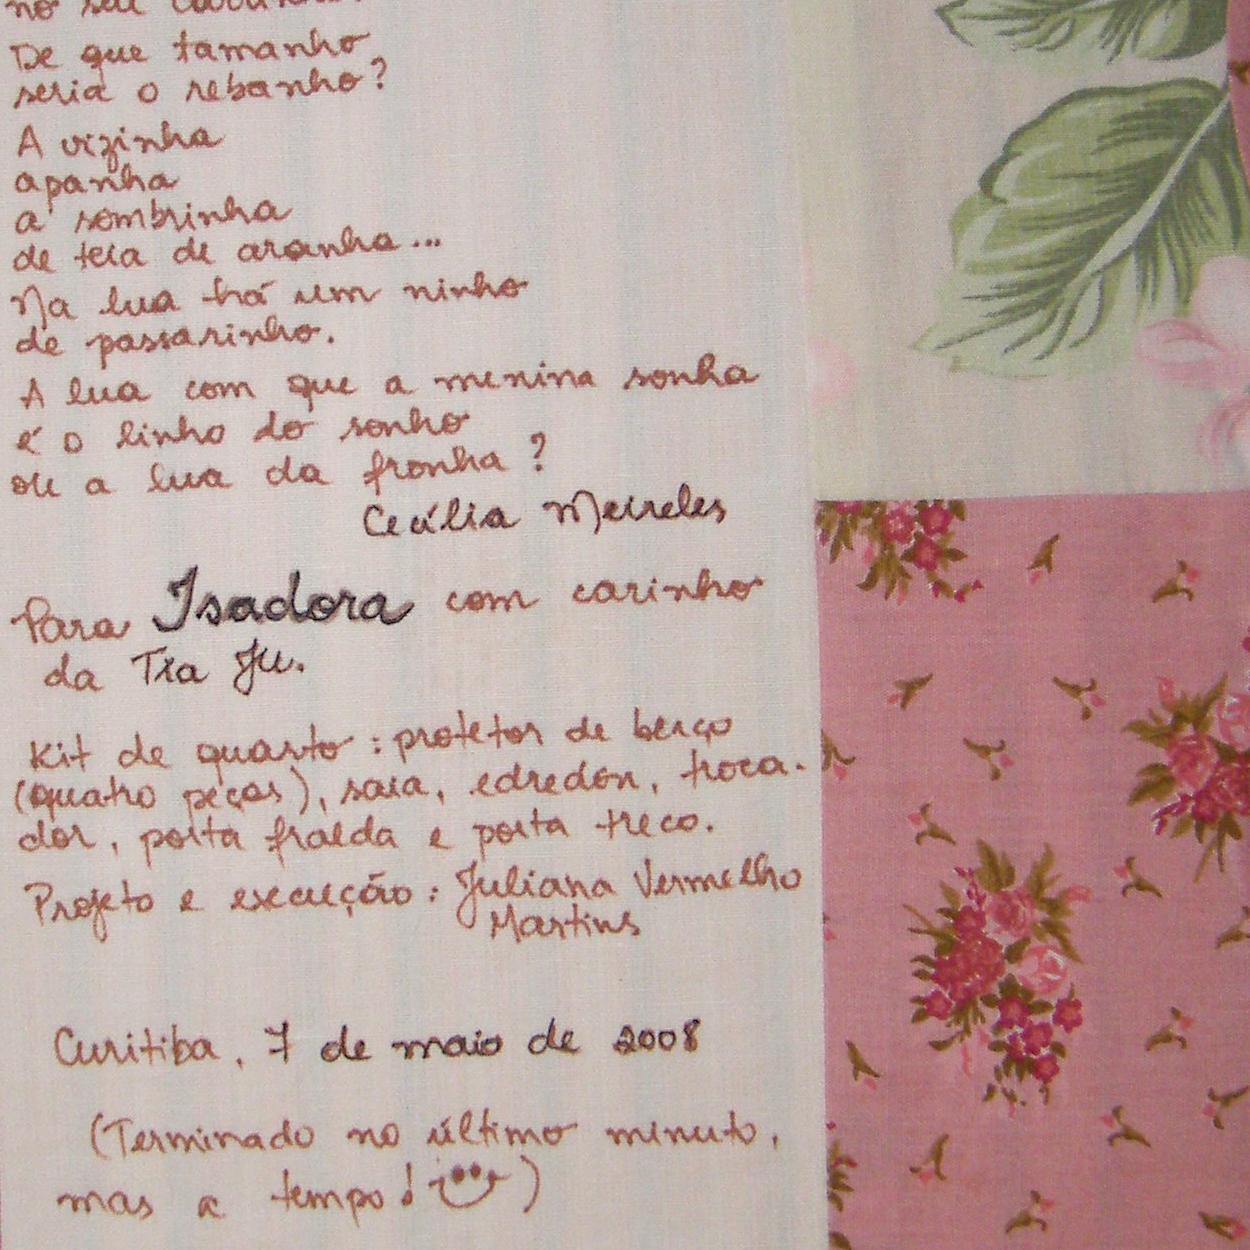 no seu
De que tamanho
seria o rebanho?
A vizinha
apanha
a sombrinha
de teia de aranha...
Na lua há um ninho
de passarinho.
A lua com que a menina sonha
é o linho do sonho
ou a lua da fronha?
Cecília Meireles
Para Isadora com carinho
da Tia Ju.
Kit de quarto: protetor de berço
(quatro peças), saia, edredon, troca-
dor, porta fralda e porta treco.
Projeto e execução: Juliana Vermelho
Martins
Curitiba, 7 de maio de 2008
(Terminado no último minuto,
mas a tempo! )